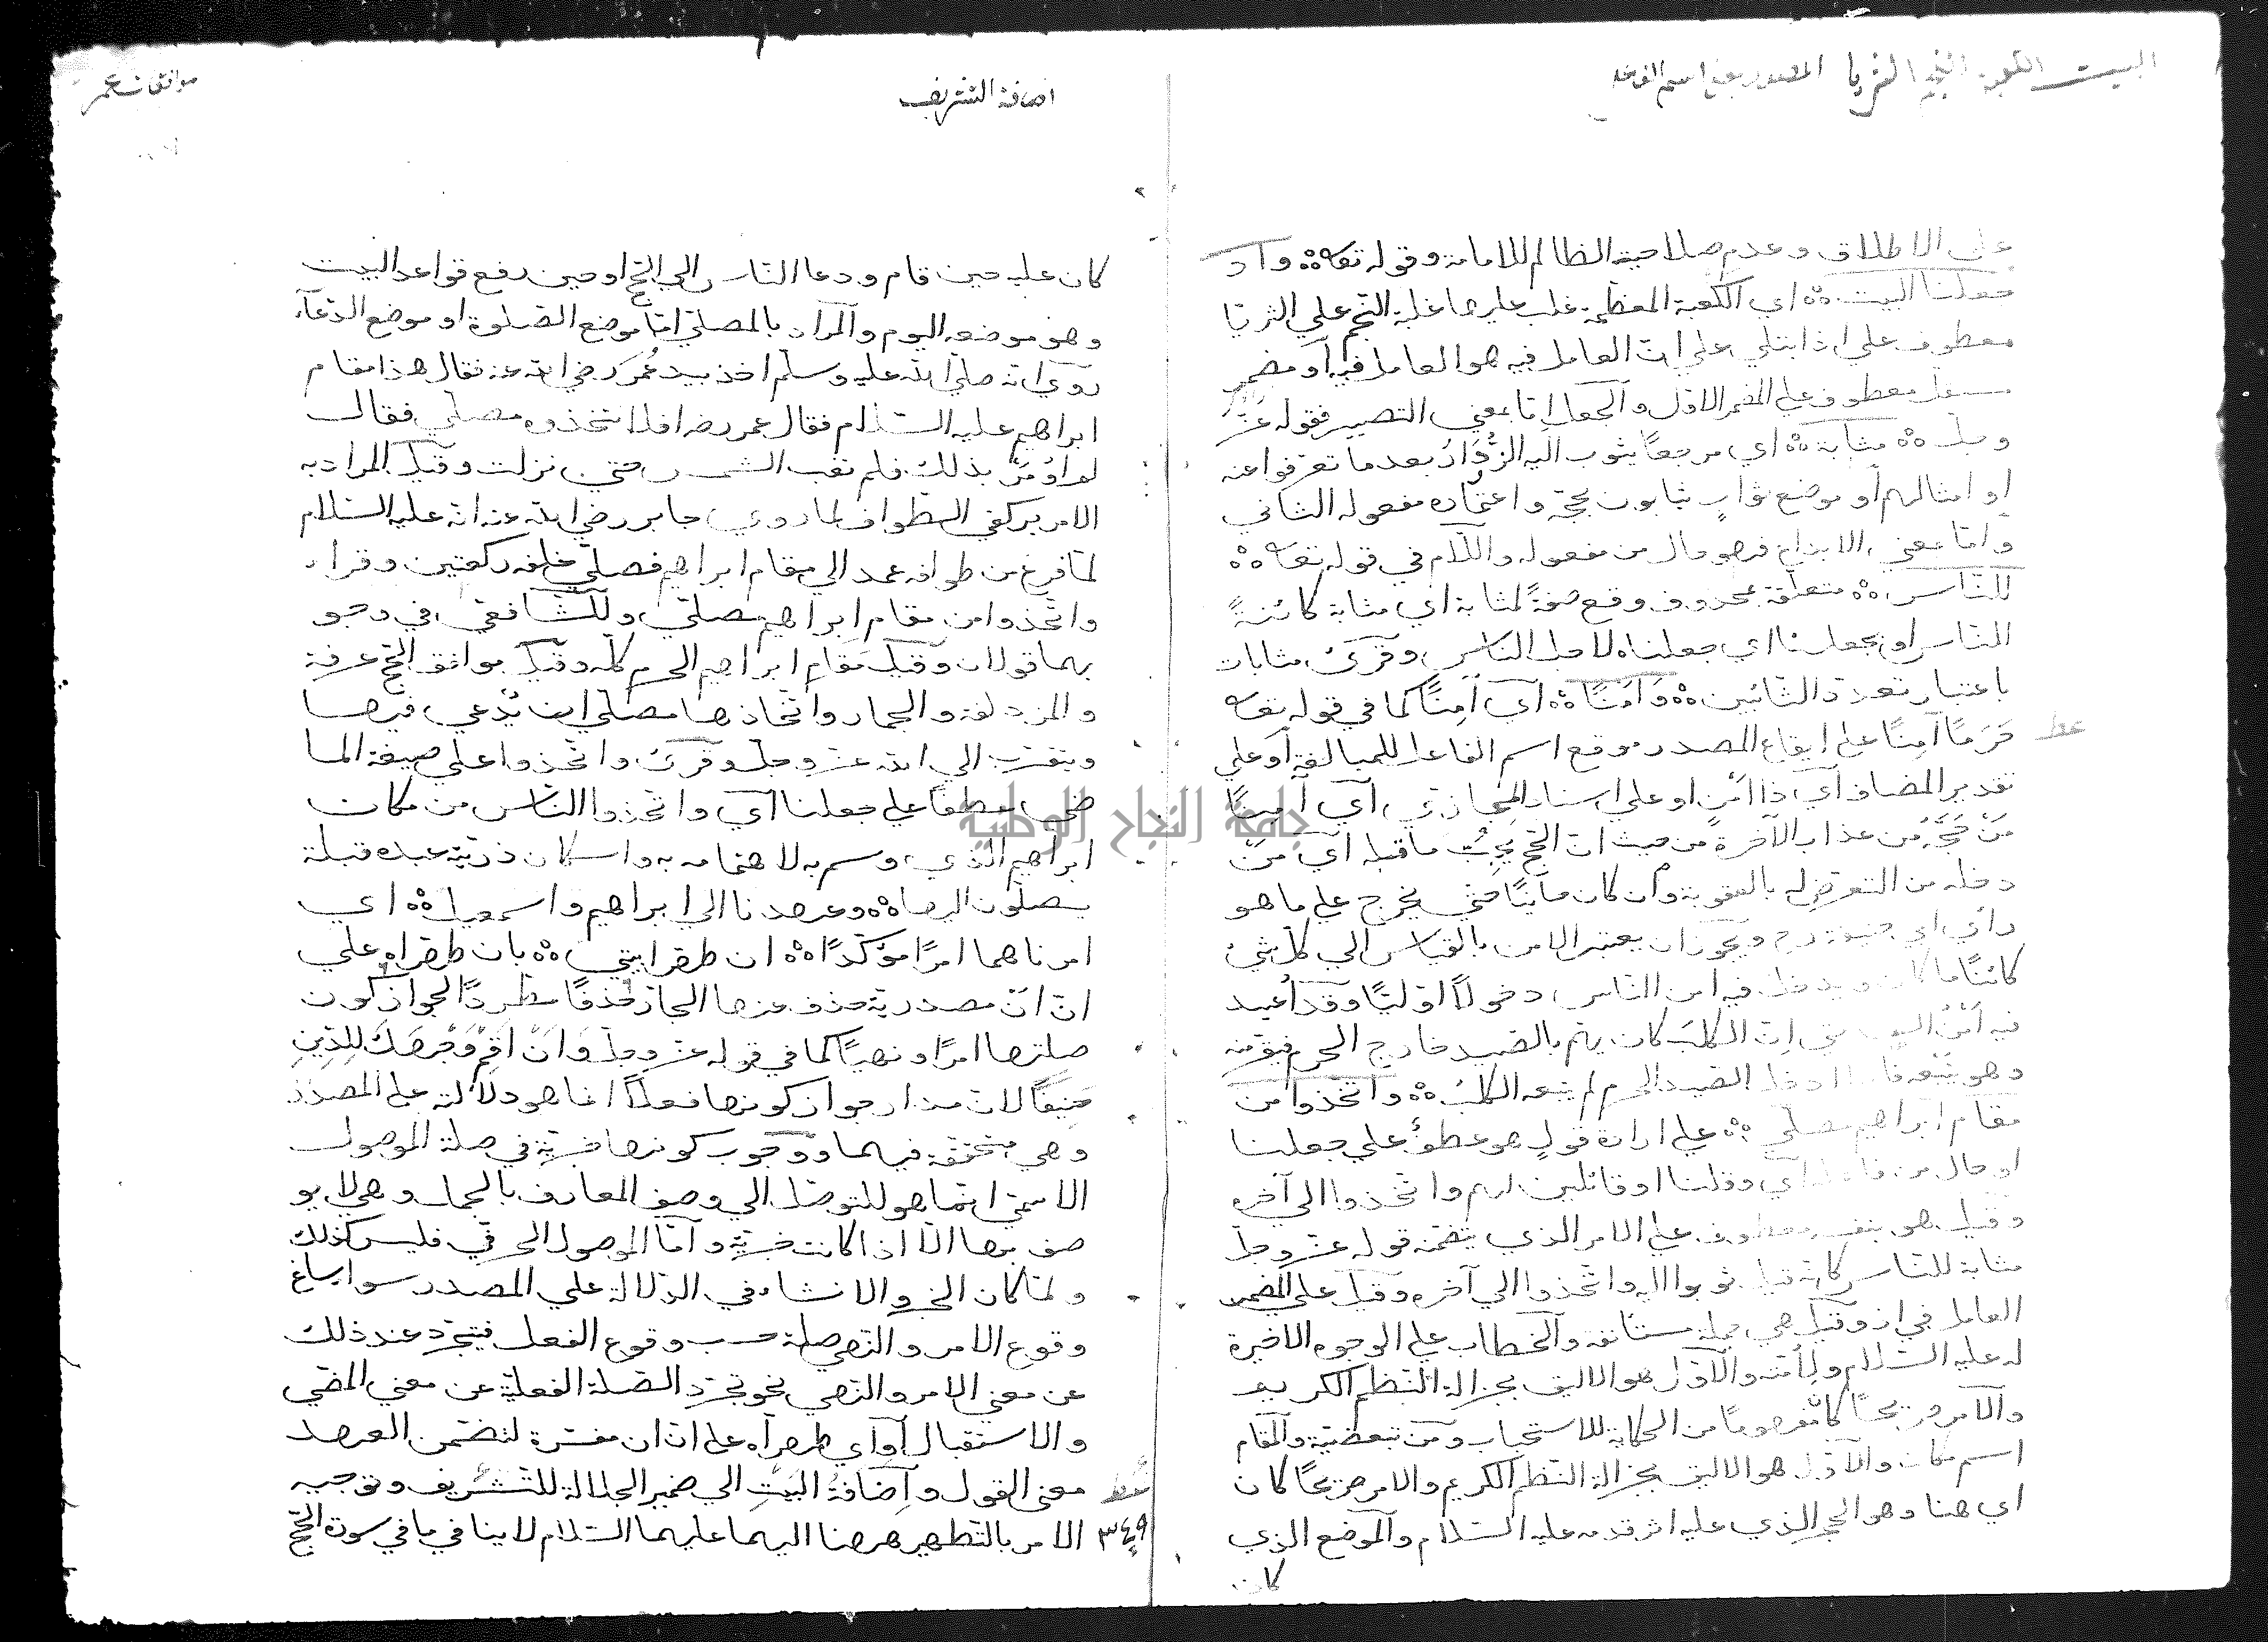 البيت الكعبة النجم الثريا المصدر بمعنى اسم الفاعل
على الاطلاق وعدم صلاحية الظالم للامامة وقوله تعه واذ
جعلنا البيت اي الكعبة المعظمة غلب عليها غلبة النجم علي الثريا
معطوف علي اذ ابتلي علي ان العامل فيه هو العامل فيه أو مضمر
مستقل معطوف علي المضمر الاول والجعل إمّا بمعني التصيير فقوله عزّ
وجل مثابة اي مرجعًا يثوب اليه الزُّوَّارُ بعد ما تفرقوا عنه
او امثالهم أو موضع ثوابٍ يثابون بحجّه واعتماره مفعوله الثاني
وامّا بمعنى الابداع فهو حال من مفعوله واللّام في قوله تعه
للنّاس متعلقة بمحذوف وقع صفةً لمثابة اي مثابة كائنةً
للناس او بجعلنا اي جعلناه لاجل الناس وقرئ مثابات
باعتبار تعدّد الثائبين وَأمْنًا أي آمنًا كما في قوله تعه
حَرَمًا آمِنًا علي ايقاع المصدر موقع اسم الفاعل للمبالغة أو علي
تقدير المضاف أي ذا أمْنٍ او علي اسناد المجازي أي آمِنًا
مَنْ حَجَّهُ من عذاب الآخرة من حيث ان الحج يجبّ ما قبله أي مَنْ
دخله من التعرّض له بالعقوبة وان كان جانيًا حتّى يخرج علي ما هو
رأي ابي حنيفة رح ويجوز ان يعتبر الامن بالقياس الي كل شئ
كائنًا ما كان ويدخل فيه امن النّاس دخولًا اوّليًا وقد اعتيد
فيه أمْنُ الصيد حتى انّ الكلبَ كان يهمّ بالصّيد خارج الحرم فيفرّ منه
وهو يتبعه فاذا دخل الصّيد الحرم لم يتبعه الكلبُ واتّخذوا من
مقام ابراهيم مصلّي علي ارادة قولٍ هو عطفٌ علي جعلنا
او حال من فاعله أي وقلنا او قائلين لهم واتّخذوا الي آخره
وقيل هو بنفسه معطوف علي الامر الذي يتضمّنه قوله عزّ وجل
مثابة للنّاس كانّه قيل ثوبوا اليه واتّخذوا الي آخره وقيل علي المضمر
العامل في اذ وقيل هي جملة مستأنفة والخطاب علي الوجوه الاخيرة
له عليه السّلام ولأمّته والاوّل هو الاليق بجزالة النّظم الكريم
والامر صريحًا كان أو مفهومًا من الحكاية للاستحباب ومن تبعيضيّة والمقام
اسم مكان والاوّل هو الاليق بجزالة النّظم الكريم والامر صريحًا كان
اي هنا وهو الحجر الذي عليه اثر قدمه عليه السّلام والموضع الذي
كان
اضافة التشريف
موافق شعر
كان عليه حين قام ودعا النّاس الي الحجّ او حين رفع قواعد البيت
وهو موضعه اليوم والمراد بالمصلّي امّا موضع الصّلوة او موضع الدّعآء
روي انّه صلّى الله عليه وسلّم اخذ بيد عُمَر رضي الله عنه فقال هذا مقام
ابراهيم عليه السّلام فقال عمر رضه افلا نتخذه مصلّي فقال
لم أُومَرْ بذلك فلم تغب الشمس حتي نزلت وقيل المراد به
الامر بركعتي الطواف لما روي جابر رضي الله عنه انّه عليه السّلام
لمّا فرغ من طوافه عمد الي مقام ابراهيم فصلّي خلفه ركعتين وقراء
واتّخذوا من مقام ابراهيم مصلّي وللشّافعي في وجو
بهما قولان وقيل مَقام ابراهيم الحرم كلّه وقيل مواقف الحجّ عرفة
والمزدلفة والجمار واتّخاذها مصلّي ان يُدْعي فيها
ويتقرّب الي الله عزّ وجل وقرئ واتّخذوا علي صيغة الما
ضي عطفًا علي جعلنا أي واتّخذوا النّاس من مكان
ابراهيم الذي وسم به لاهتمامه به واسكان ذرّيّته عنده قبلة
يصلّون اليها وعهدنا الي ابراهيم واسمعيل اي
امرناهما امرًا مؤكّدًا ان طهّرا بيتي بان طهّراه علي
انّ ان مصدرية حذف عنها الجار حذفًا مطّردًا لجواز كون
صلتها امرًا ونهيًا كما في قوله عزّ وجلّ وَأنْ أقِمْ وَجْهَكَ لِلدِّينِ
حَنِيفًا لانّ مدار جواز كونها فعلًا انما هو دلالته علي المصدر
وهي متحققة فيهما ووجوب كونها خبريّة في صلة الموصول
الاسمّي انّما هو للتوصّل الي وصف المعارف بالجمل وهي لا يو
صف بها الّا اذا كانت خبريّة وامّا الموصول الحرفي فليس كذلك
ولمّا كان الخبر والانشاء في الدّلالة علي المصدر سواء ساغ
وقوع الامر والنّهي صلة حسب وقوع الفعل فيتجرّد عند ذلك
عن معني الامر والنّهي نحو تجرّد الصّلة الفعليّة عن معني المضي
والاستقبال أو اي طهرآه علي انّ ان مفسّرة لتضمّن العهد
معنى القول وإضافةُ البَيْتِ الي ضمير الجلالة للتّشريف وتوجيه
٣٤٩ الامر بالتطهير ههنا اليهما عليهما السّلام لا ينافي ما في سورة الحجّ
جامعة النجاح الوطنية